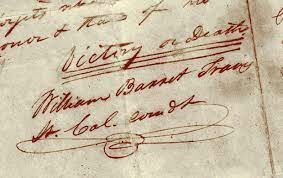 onor & that of
Victory or Death
William Barret Travis
Lt. Col. comdt